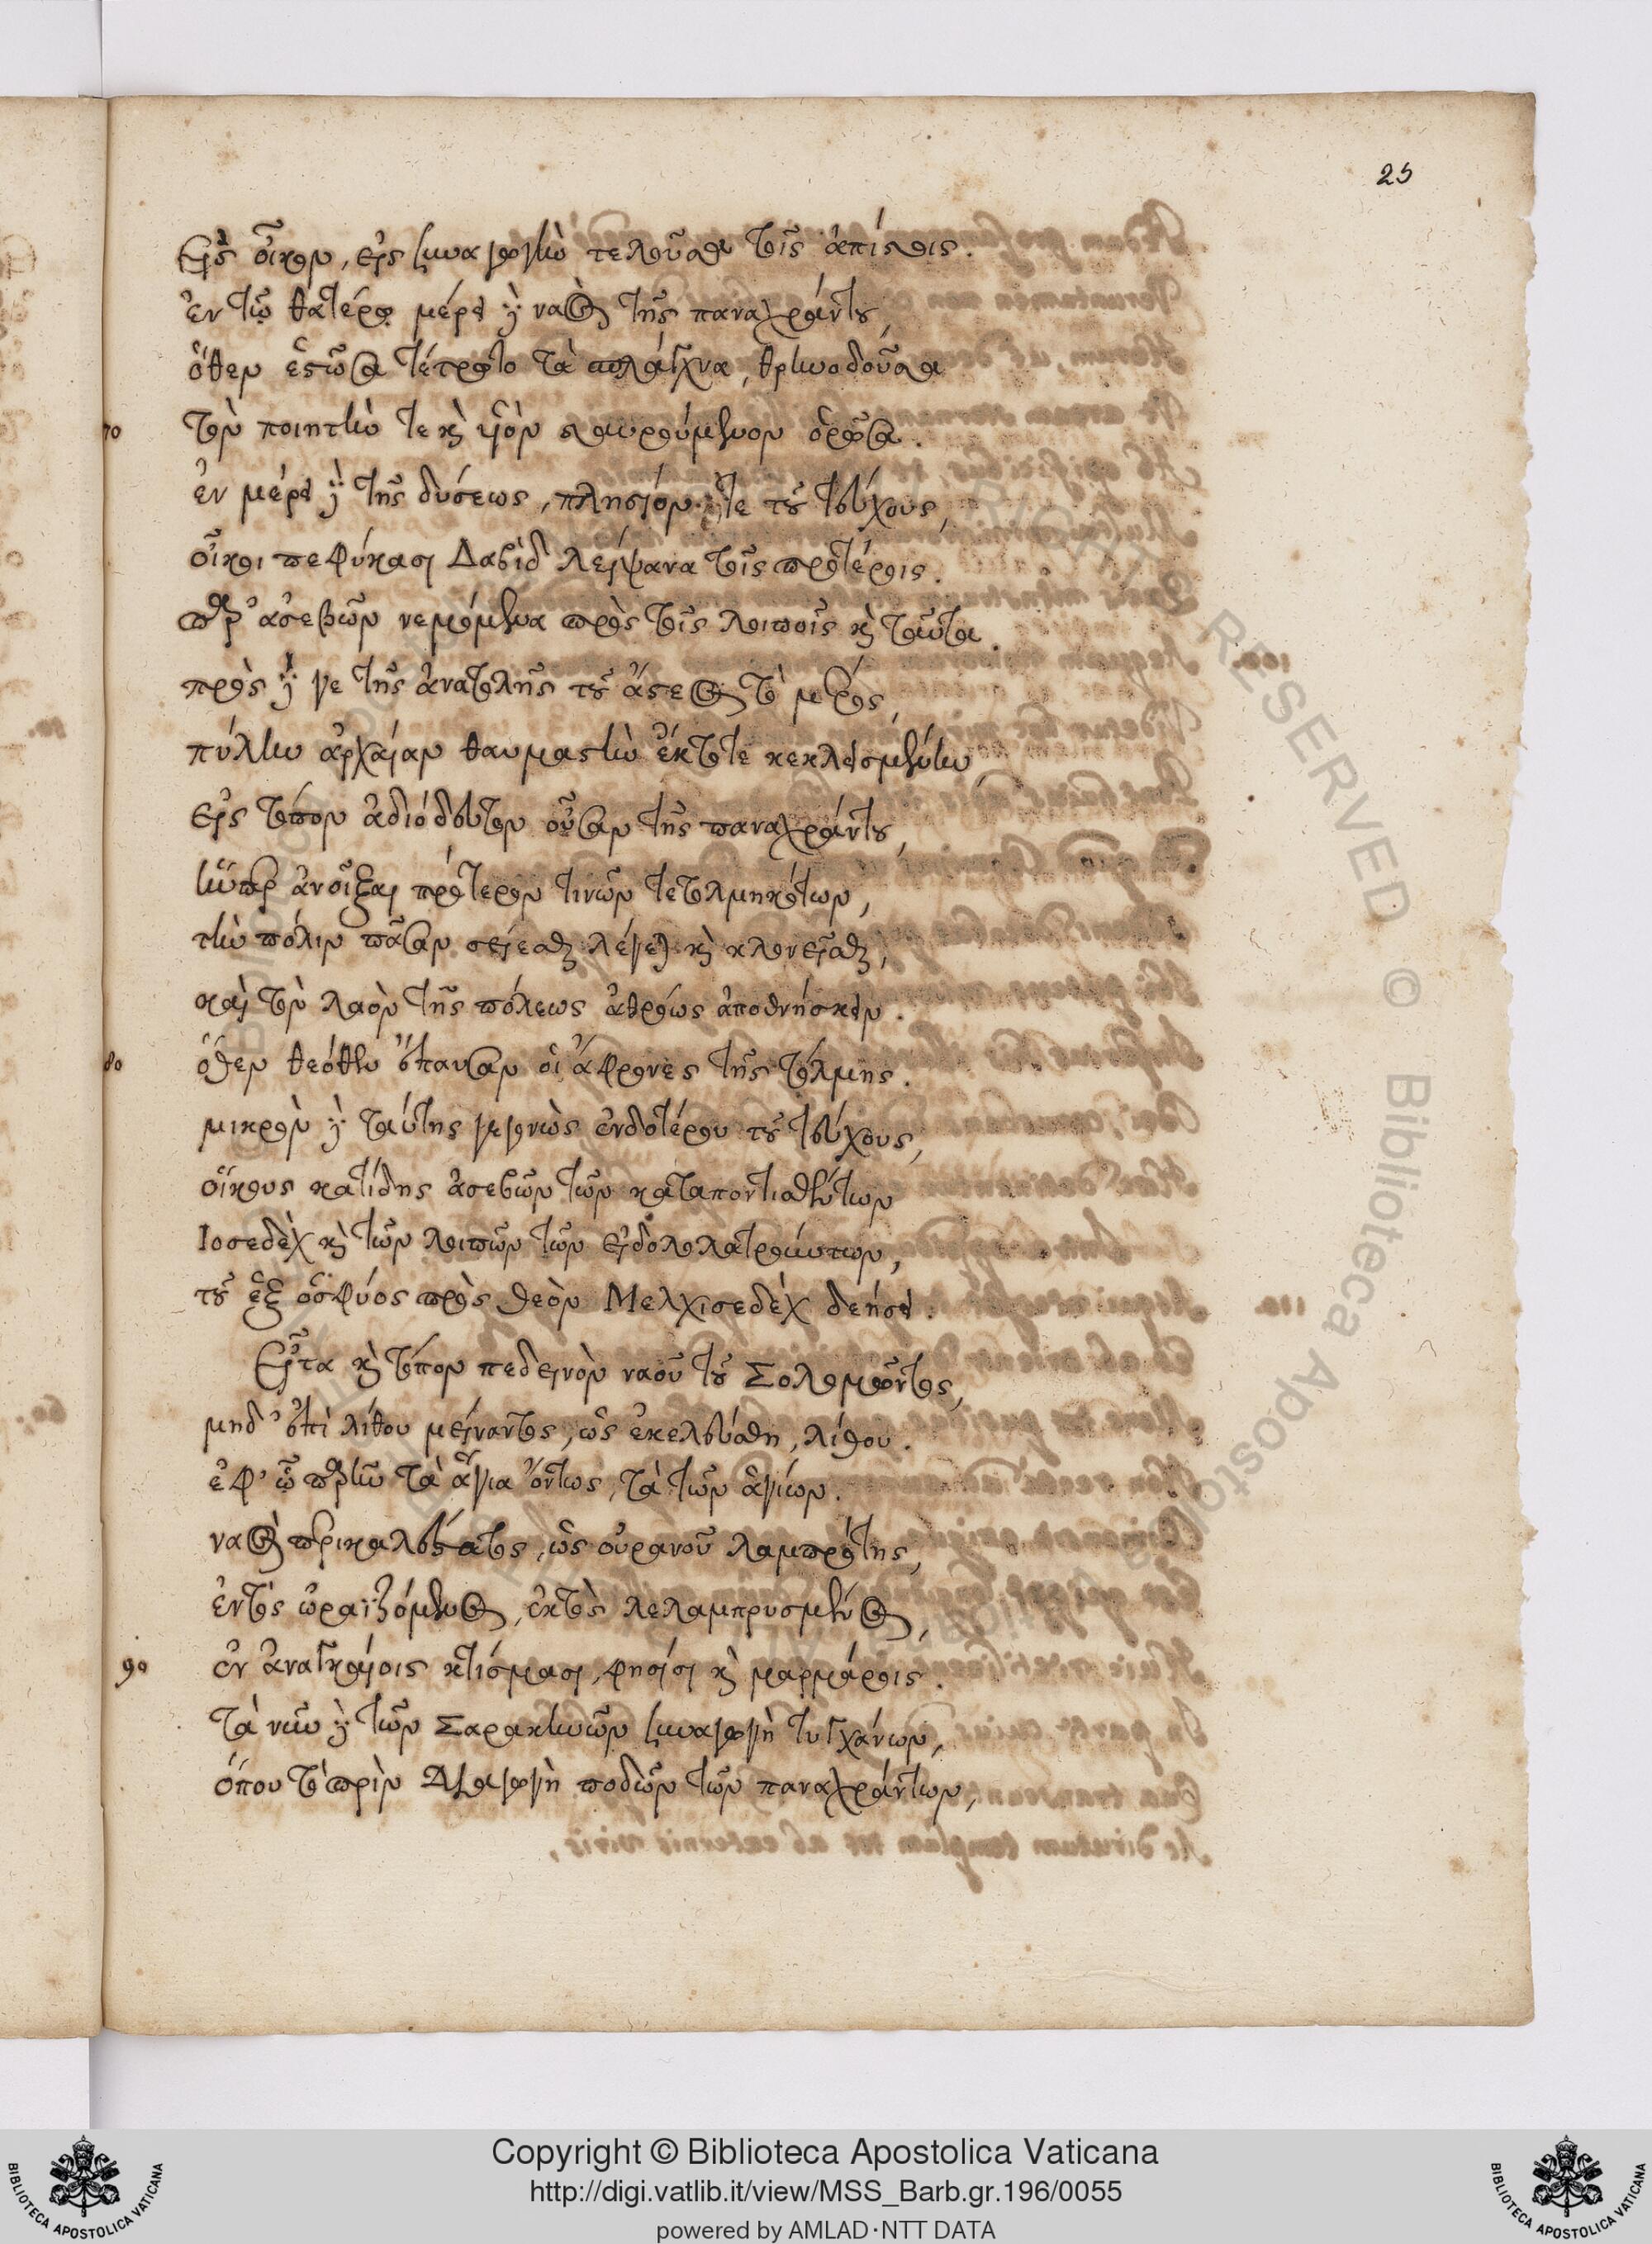 25
Εἰς οἶκον, εἰς συναγωγὴν τελοῦσαν τοῖς ἀπίστοις.
ἐν τῷ θατέρῳ μέρει δὲ ναὸς τῆς παναχράντου,
ὅθεν ἑστῶσα τέτρωτο τὰ σπλάγχνα, θρηνῳδοῦσα
70 τὸν ποιητὴν τε καὶ υἱὸν σταυρούμενον ὁρῶσα.
ἐν μέρει δὲ τῆς δύσεως, πλησίον τε τοῦ τεύχους,
οἶκοι πεφύκασι Δαβὶδ λείψανα τοῖς προτέροις.
παρ' ἀσεβῶν νεμόμενα πρὸς τοῖς λοιποῖς καὶ ταῦτα.
πρὸς δέ γε τῆς ἀνατολῆς τοῦ ἄστεος τὸ μέρος,
πύλην ἀρχαίαν θαυμαστὴν ἔκτοτε κεκλεισμένην
εἰς τύπον ἀδιόδευτον οὖσαν τῆς παναχράντου,
ἥνπερ ἀνοῖξαι πρότερον τινῶν τετολμηκότων,
τὴν πόλιν πᾶσαν σείεσθαι λέγεται καὶ κλονεῖσθαι,
καὶ τὸν λαὸν τῆς πόλεως ἀθρόως ἀποθνήσκειν.
80 ὅθεν θεόθεν ἔπαυσαν οἱ ἄφρονες τῆς τόλμης.
μικρὸν δὲ ταύτης γεγονὼς ἐνδοτέρου τοῦ τεύχους,
οἴκους κατίδῃς ἀσεβῶν τῶν καταποντισθέντων
Ιοσεδὲχ καὶ τῶν λοιπῶν τῶν εἰδολολατρούντων,
τοῦ ἐξ ὀσφύος πρὸς θεὸν Μελχισεδὲχ δεήσει.
Εἶτα καὶ τόπον πεδεινὸν ναοῦ τοῦ Σολομῶντος,
μηδ' ἐπὶ λίθου μείναντος, ὡς ἐκελεύσθη, λίθου.
ἐφ' ᾧ παρῆν τὰ ἅγια ὄντως, τὰ τῶν ἁγίων.
ναὸς περικαλέστατος, ὡς οὐρανοῦ λαμπρότης,
ἐντὸς ὡραϊζόμενος, ἐκτὸς λελαμπρυσμένος,
90 ἐν ἀναγκαίοις κτίσμασι, φησίσι καὶ μαρμάροις.
τὰ νῦν δὲ τῶν Σαρακηνῶν συναγωγὴ τυγχάνων,
ὅπου τὸ πρὶν διαγωγὴ ποδῶν τῶν παναχράντων,
Copyright © Biblioteca Apostolica Vaticana
http://digi.vatlib.it/view/MSS_Barb.gr.196/0055
powered by AMLAD·NTT DATA
BIBLIOTECA APOSTOLICA VATICANA
BIBLIOTECA APOSTOLICA VATICANA